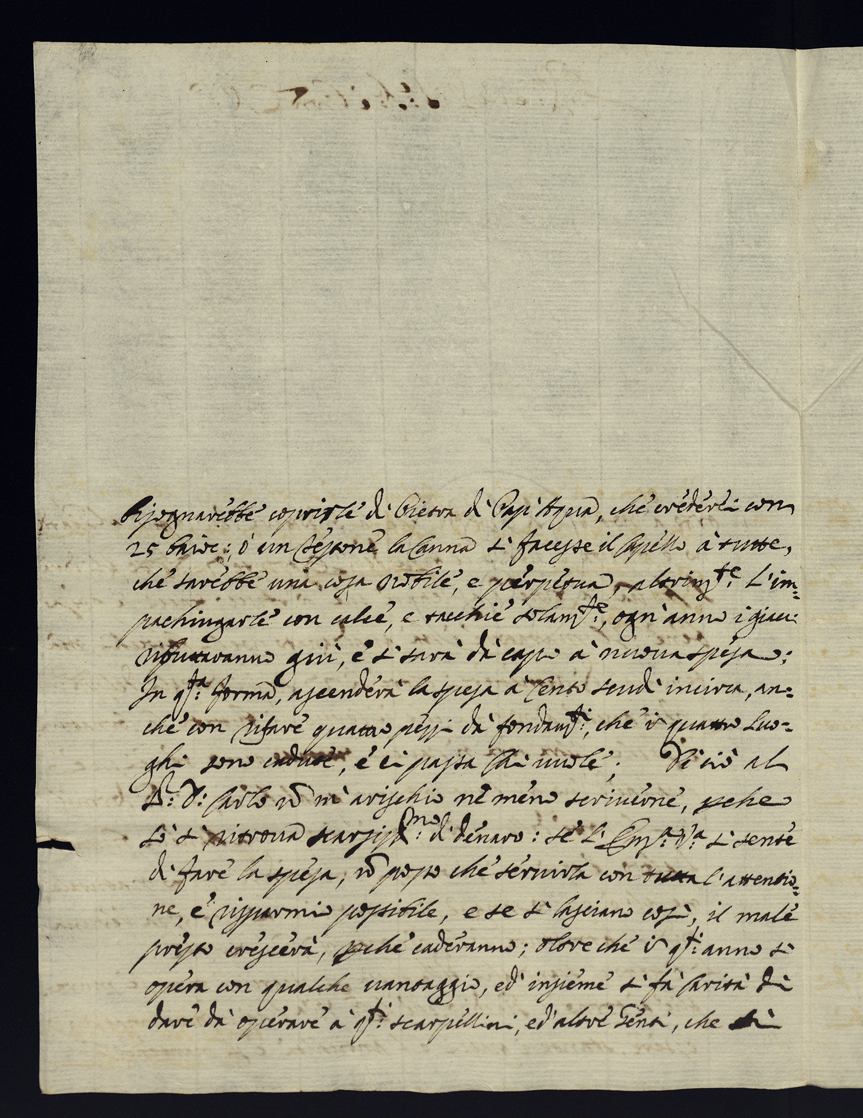 bisognarebbe coprirle di Pietra di Cap' Aqua, che crederei con
25 baioc: ò un Testone la Canna si facesse il Capello à tutte,
che sarebbe una cosa nobile, e perpetua, altrim.te L'im=
pachingarle con calce, e racchie solam.te, ogn'anno i giacci
ributtaranno giù, e si sarà da capo à nuova spesa:
In q.ta forma, ascenderà la spesa à Cento scudi incirca, an=
che con rifare quattro pezzi da fondam.ti, che in quattro Luo=
ghi sono cadute, e ci passa chi vuole; Di ciò al
S.r D: Carlo nō m'arischio ne meno scriverne, pche
sò si ritrova scarsiss.mo di denaro: se l'Em.a V.a si sente
di fare la spesa, nō posso che servirla con tutta l'attentio=
ne, e risparmio possibile, e se si lasciano così, il male
presto crescerà, pche caderanno; oltre che in q.to anno si
opera con qualche vantaggio, ed insieme si fà Carità di
dare da operare à q.ti scarpellini, ed'altre Genti, che